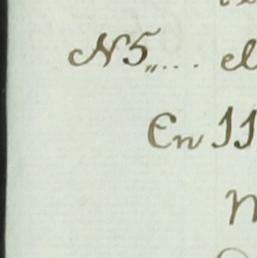 N5„... el
En 11